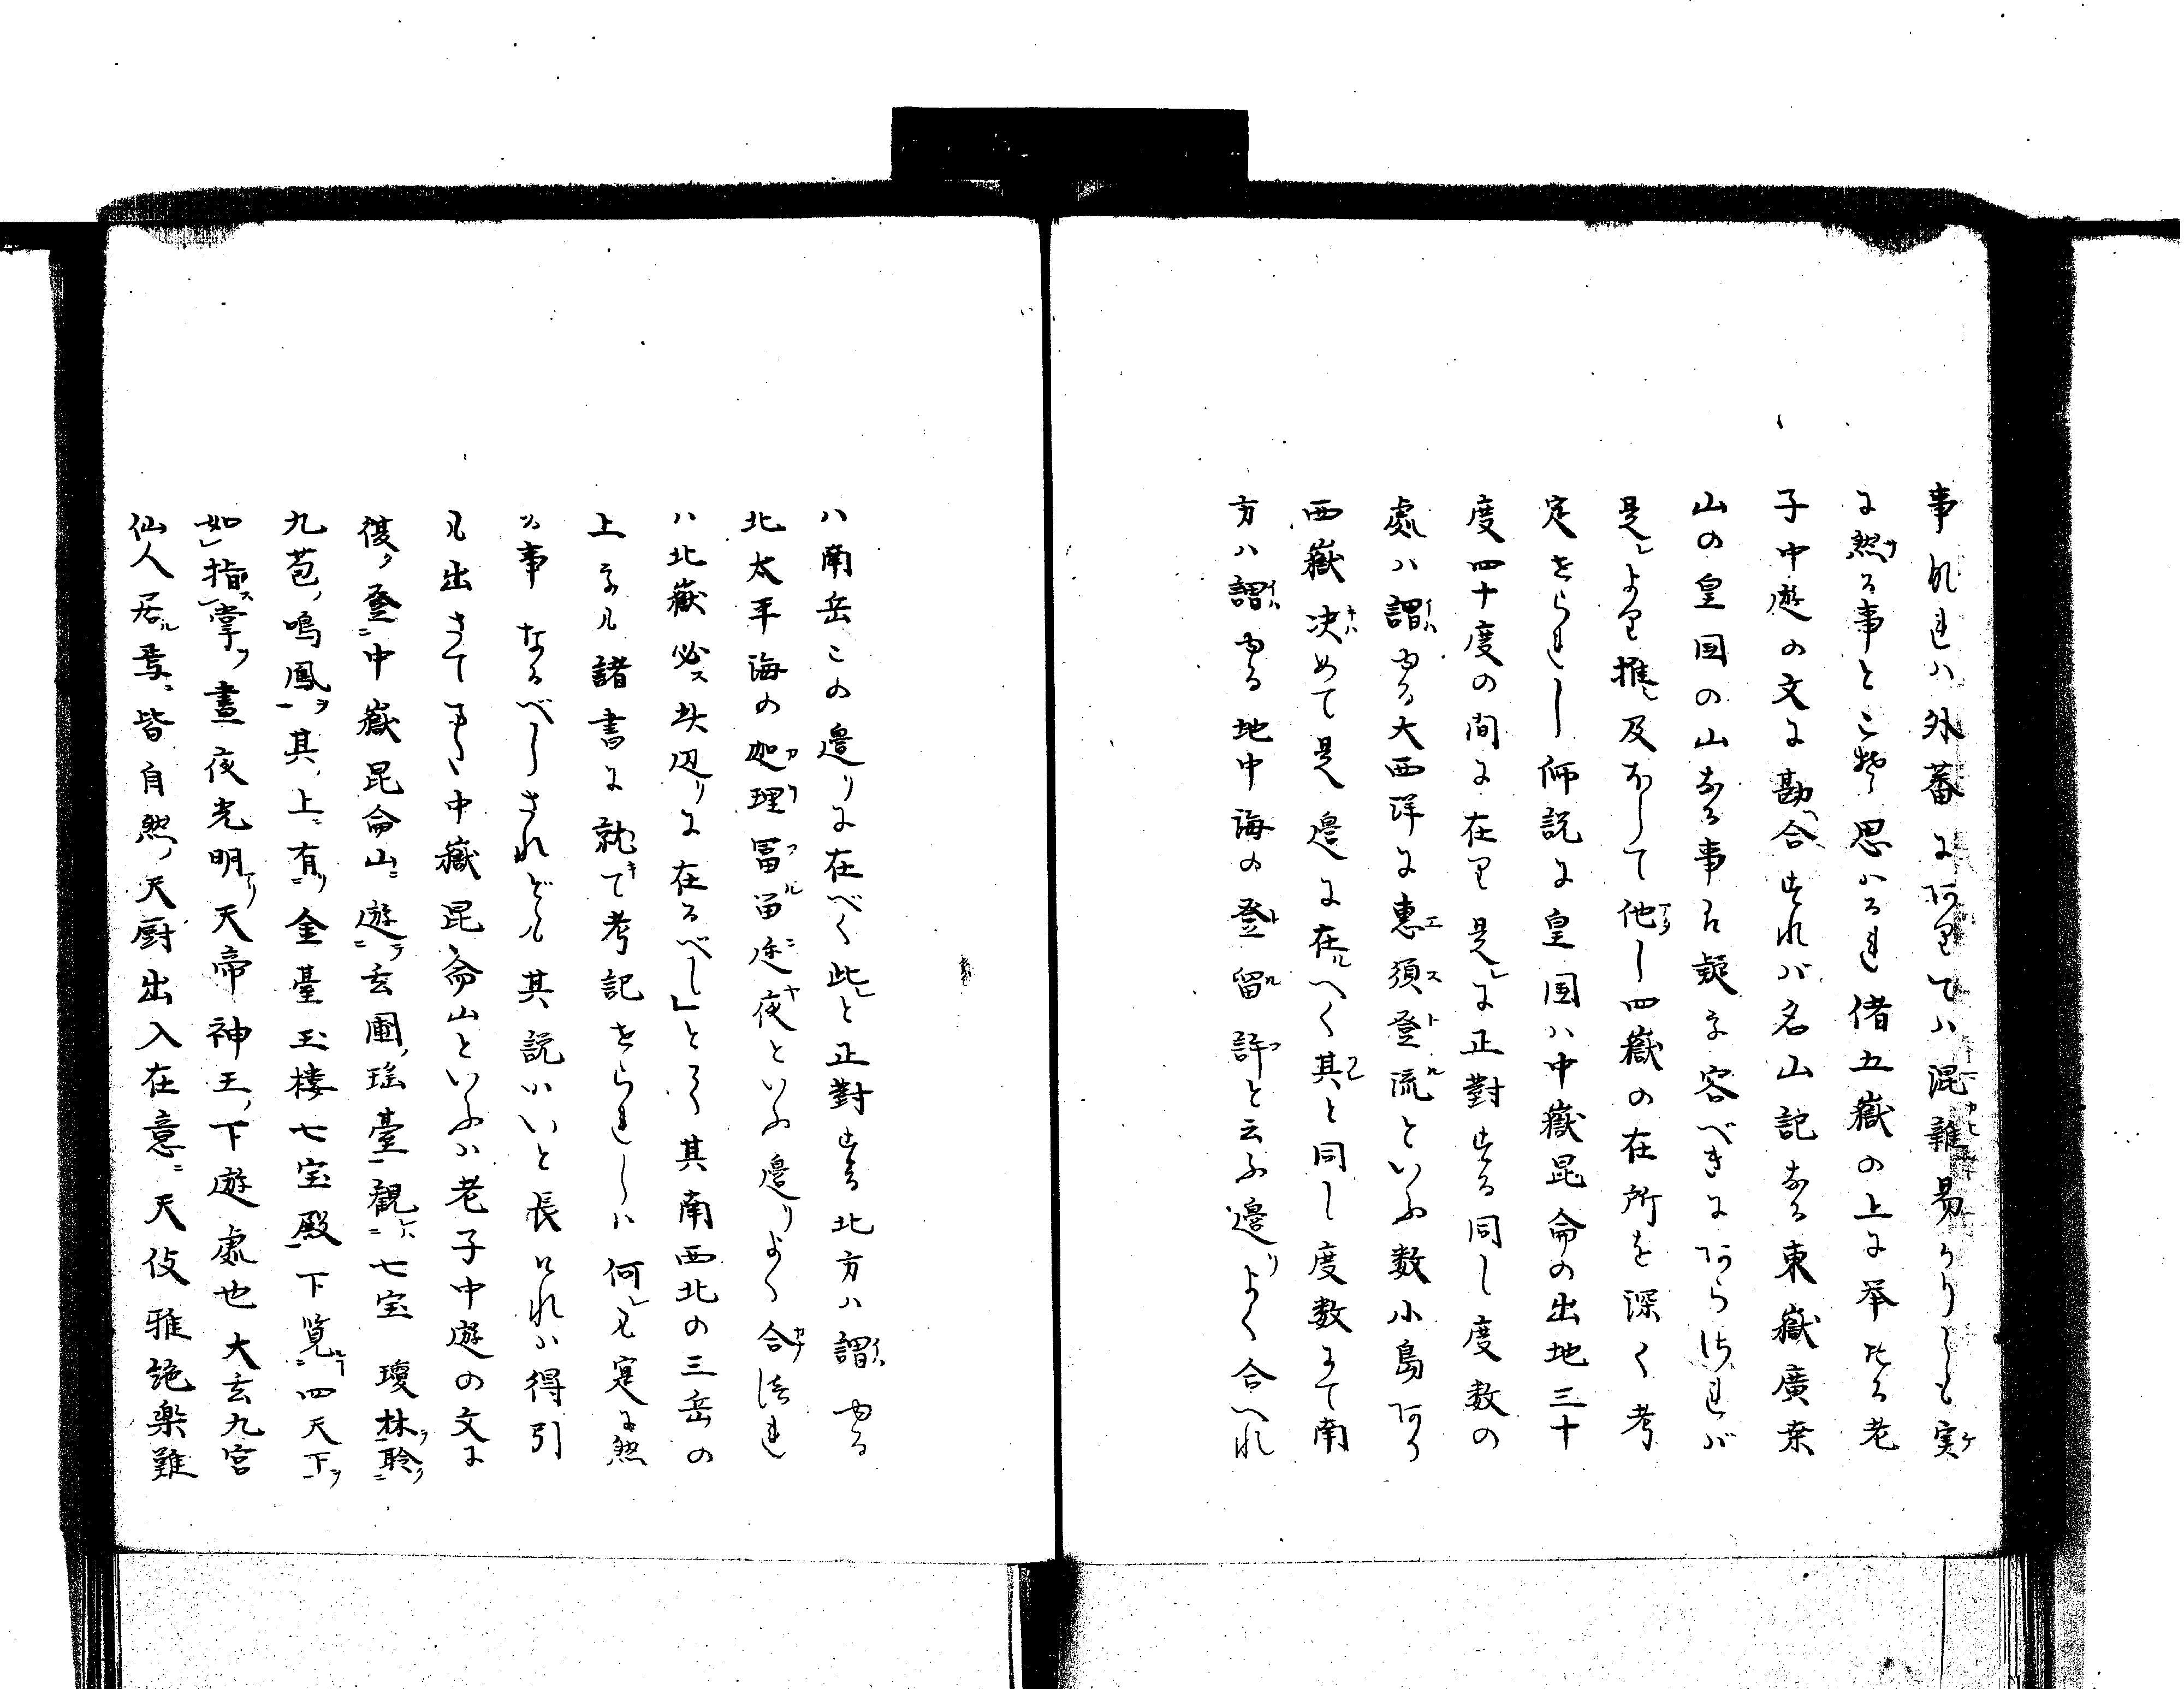 事なれハ外蕃にありてハ混雑易かりしも実
に然る事とこそ思はるれ偖五嶽の上に挙たる老
子中遊の文に勘合すれバ名山記なる東嶽廣桑
山の皇国の山なる事ハ疑ふ容べきにあらざれバ
是より推及ぼして他し四嶽の在所を深く考
定せられし師説に皇国ハ中嶽昆侖の出地三十
度四十度の間に在り是に正對する同し度数の
處ハ謂ゆる大西洋に恵須登流といふ数小島あり
西嶽决めて是邉に在べく其と同し度数にて南
方ハ謂ゆる地中海の登留許と云ふ邉りよく合へれ
ハ南岳この邉りに在べく此と正對する北方ハ謂ゆる
北太平海の迦理冨留迩夜といふ邉りよく合けれ
ハ北嶽必ス其辺りに在るべし」とて其南西北の三岳の
上をも諸書に就て考記せられしハ何も実に然
る事なるべしされども其説ハいと長けれハ得引
も出さて中嶽昆侖山といふハ老子中遊の文に
復登中嶽昆侖山遊玄圃瑶臺観七宝瓊林聆
九苞鳴鳳其上有金臺玉樓七宝殿下覧四天下
如指掌晝夜光明天帝神王下遊處也大玄九宮
仙人居焉皆自然天厨出入在意天伎雅絶楽難